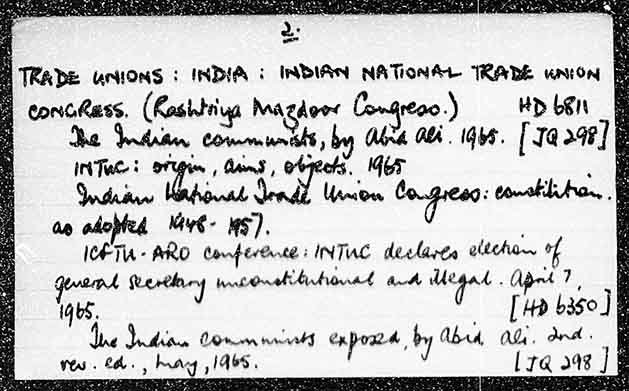 2.
TRADE UNIONS : INDIA : INDIAN NATIONAL TRADE UNION
CONGRESS. (Rashtriya Mazdoor Congress.) HD 6811
The Indian communists, by Abid Ali. 1965. [JQ 298]
INTUC : origin, aims, objects. 1965
Indian National Trade Union Congress: constitution.
as adopted 1948 - 1957.
ICFTU-ARO conference: INTUC declares election of
general secretary unconstitutional and illegal. April 7,
1965. [HD 6350]
The Indian communists exposed, by Abid Ali. 2nd.
rev. ed., May, 1965. [JQ 298]